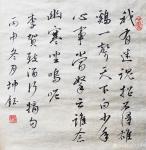 我有迷魂招不得雄
鷄一声天下白少年
心事當拏云誰念
幽寒坐嗚呃
李賀致酒行摘句
丙申冬月坤鈺